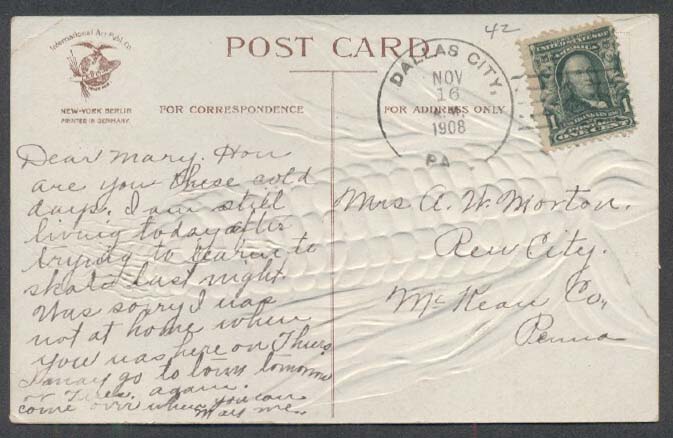 42
International Art Publ. Co.
NEW-YORK BERLIN
PRINTED IN GERMANY.
POST CARD.
FOR CORRESPONDENCE
FOR ADDRESS ONLY
DALLAS CITY,
NOV
16
A.M.
1908
PA.
UNITED STATES OF AMERICA
1 1
ONE CENT
Dear Mary. How
are you these cold
days. I am still
living today after
trying to learn to
skate last night.
Was sorry I was
not at home when
you was here on Thurs.
I may go to town tomorrow
or Tues. again.
come over when you can
Mayme.
Mrs A. W. Morton.
Rew City.
McKean Co,
Penna